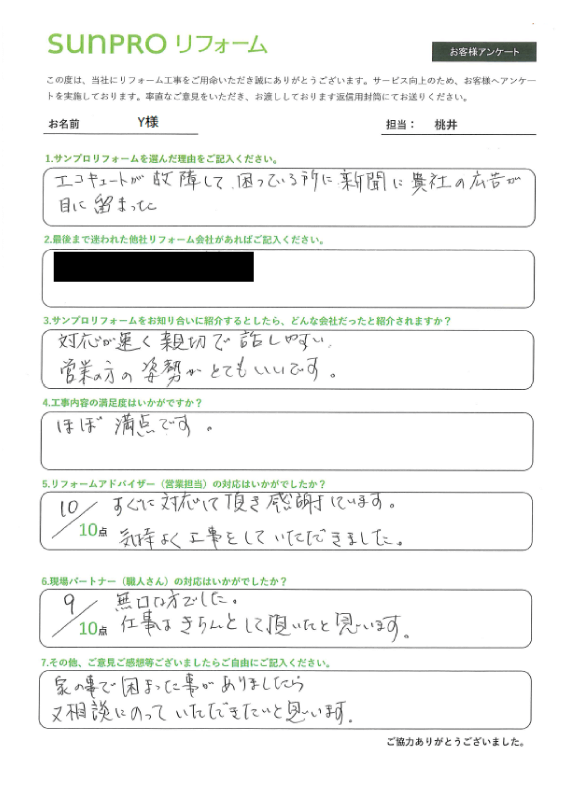 sunpro リフォーム
お客様アンケート
この度は、当社にリフォーム工事をご用命いただき誠にありがとうございます。サービス向上のため、お客様へアンケー
トを実施しております。率直なご意見をいただき、お渡ししております返信用封筒にてお送りください。
お名前 Y様 担当： 桃井
1.サンプロリフォームを選んだ理由をご記入ください。
エコキュートが故障して困っている所に新聞に貴社の広告が
目に留まった
2.最後まで迷われた他社リフォーム会社があればご記入ください。
3.サンプロリフォームをお知り合いに紹介するとしたら、どんな会社だったと紹介されますか？
対応が速く親切で話しやすい、
営業の方の姿勢がとてもいいです。
4.工事内容の満足度はいかがですか？
ほぼ満点です。
5.リフォームアドバイザー（営業担当）の対応はいかがでしたか？
10/10点 すぐに対応して頂き感謝しています。
気持よく工事をしていただきました。
6.現場パートナー（職人さん）の対応はいかがでしたか？
9/10点 無口な方でした。
仕事はきちんとして頂いたと思います。
7.その他、ご意見ご感想等ございましたらご自由にご記入ください。
家の事で困まった事がありましたら
又相談にのっていただきたいと思います。
ご協力ありがとうございました。